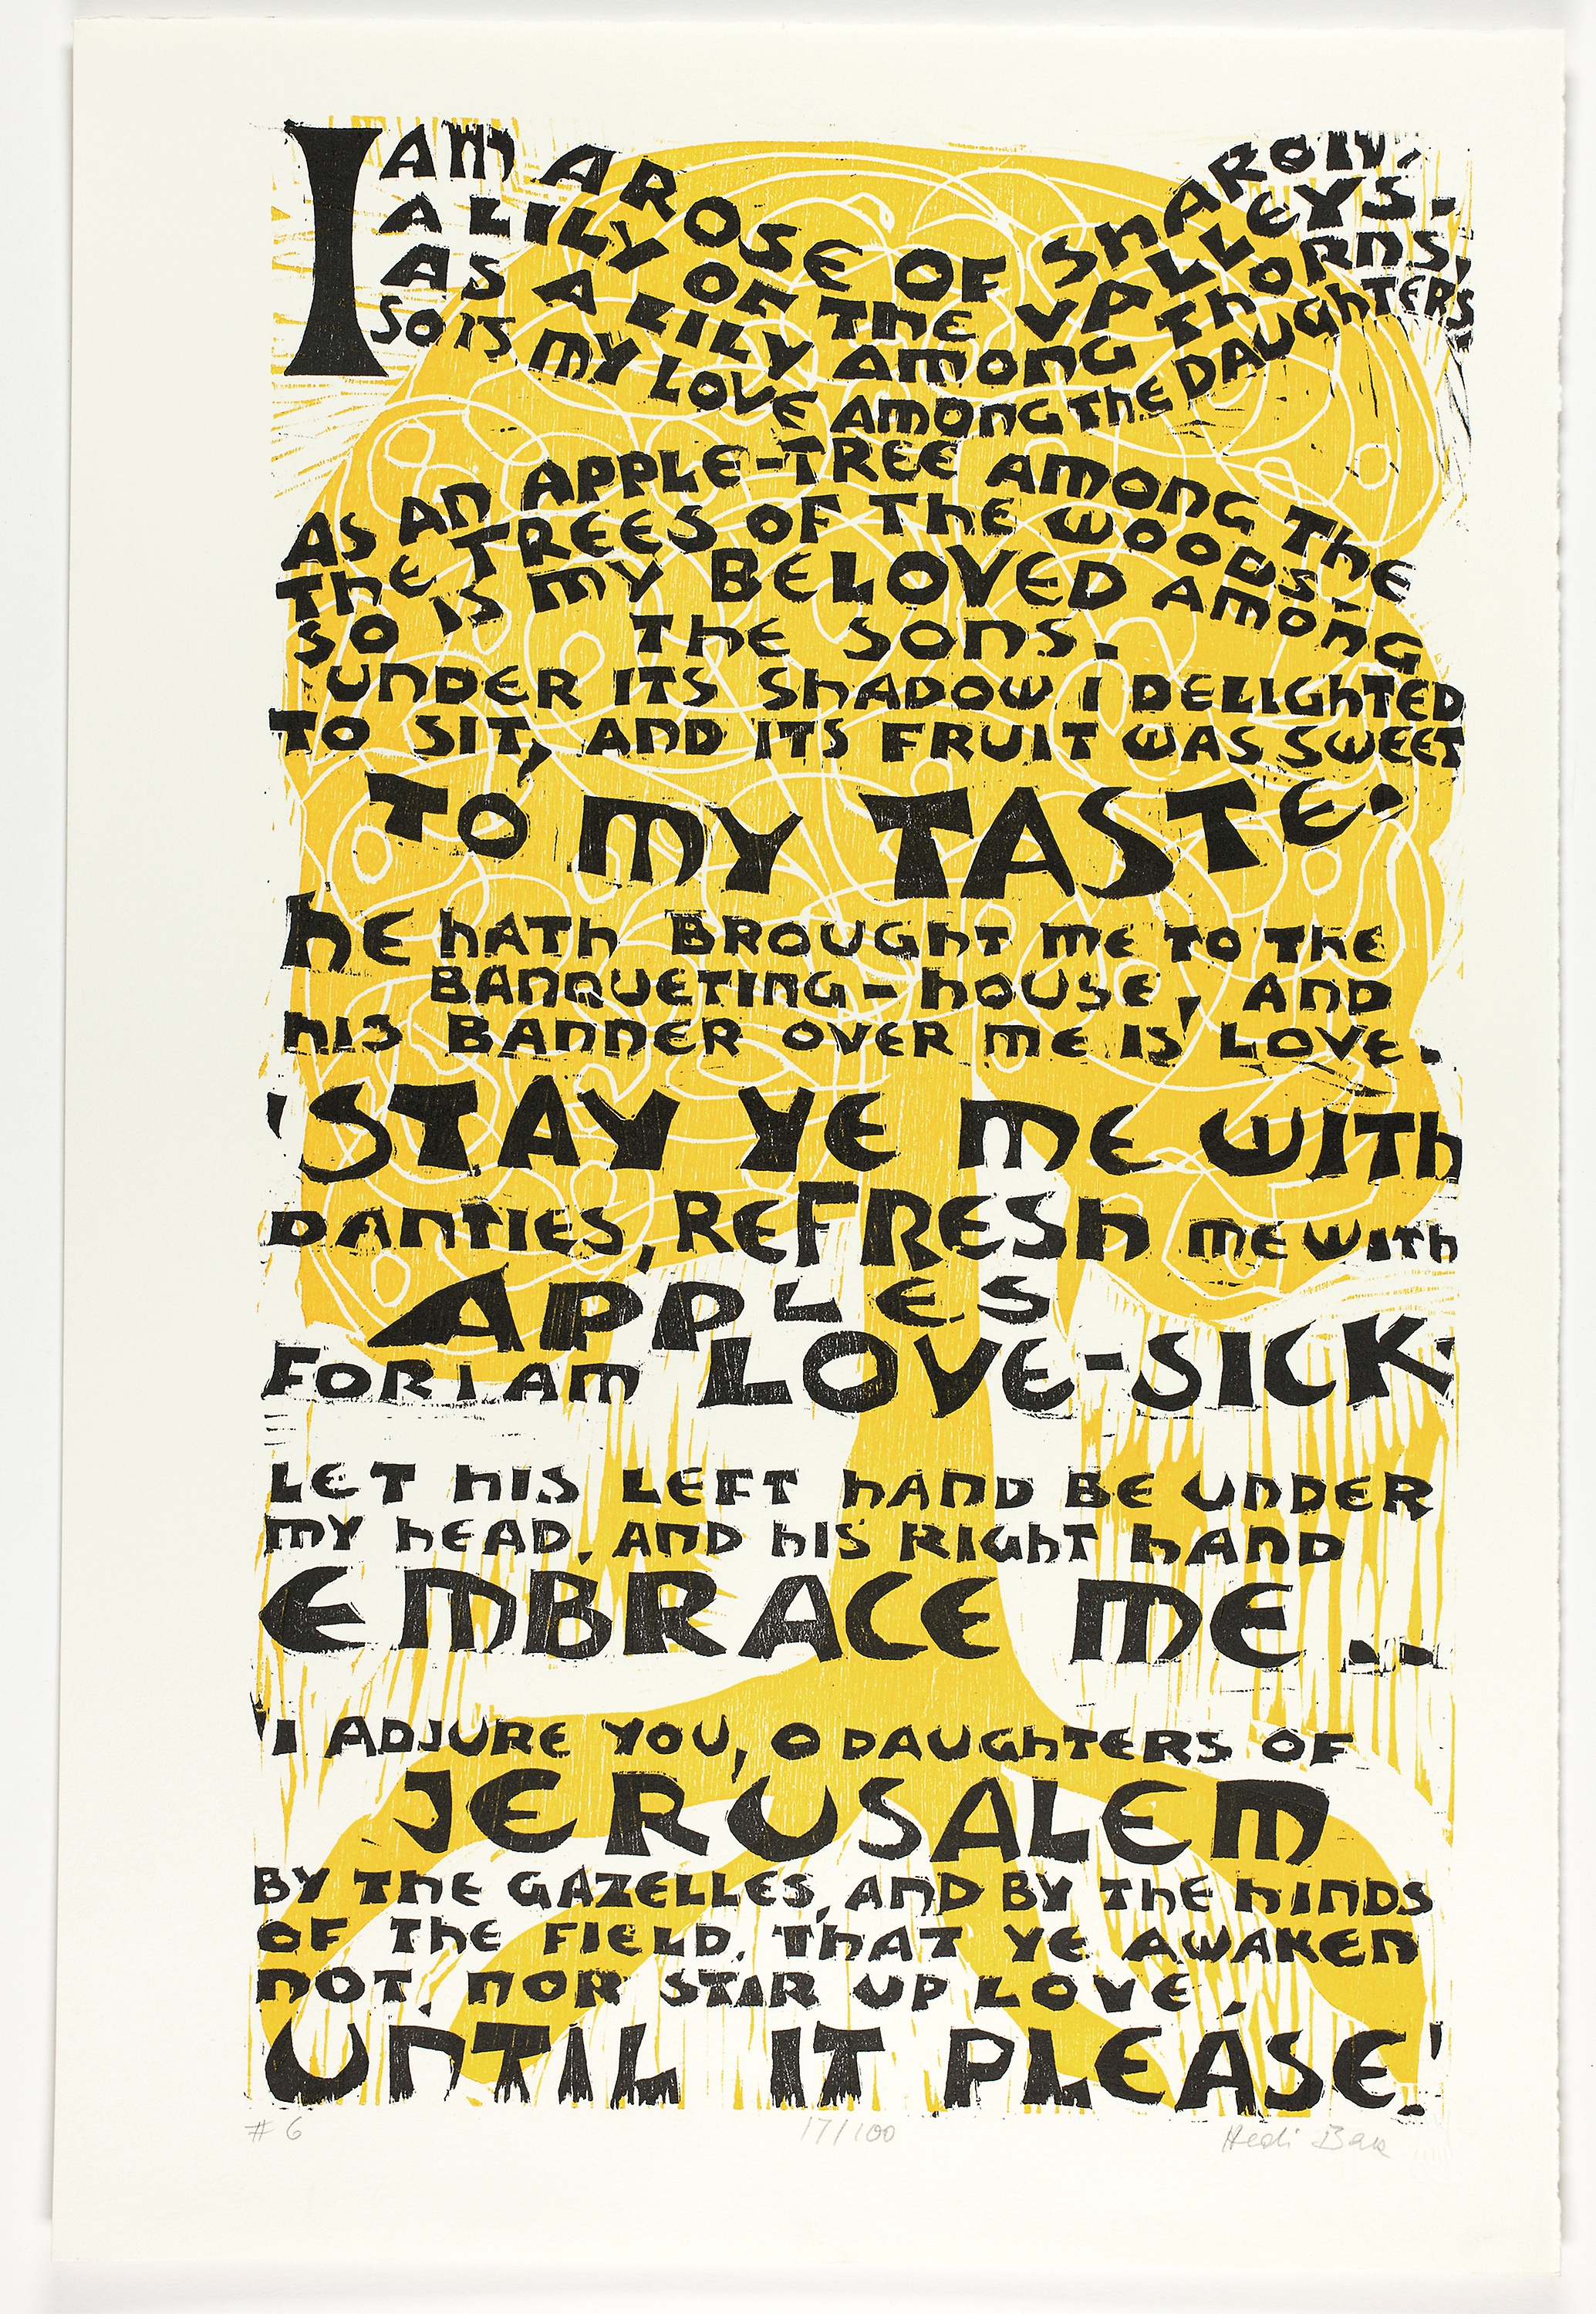 I AM A ROSE OF SHARON,
A LILY OF THE VALLEYS.
AS A LILY AMONG THORNS,
SO IS MY LOVE AMONG THE DAUGHTERS
AS AN APPLE-TREE AMONG THE
THE TREES OF THE WOODS-
SO IS MY BELOVED AMONG
THE SONS.
UNDER ITS SHADOW I DELIGHTED
TO SIT, AND ITS FRUIT WAS SWEET
TO MY TASTE.
HE HATH BROUGHT ME TO THE
BANQUETING-HOUSE, AND
HIS BANNER OVER ME IS LOVE.
'STAY YE ME WITH
DANTIES, REFRESH ME WITH
APPLES
FOR I AM LOVE-SICK.
LET HIS LEFT HAND BE UNDER
MY HEAD, AND HIS RIGHT HAND
EMBRACE ME..
'I ADJURE YOU, O DAUGHTERS OF
JERUSALEM
BY THE GAZELLES, AND BY THE HINDS
OF THE FIELD, THAT YE AWAKEN
NOT, NOR STIR UP LOVE,
UNTIL IT PLEASE!'
# 6 17/100 Hedi Bak